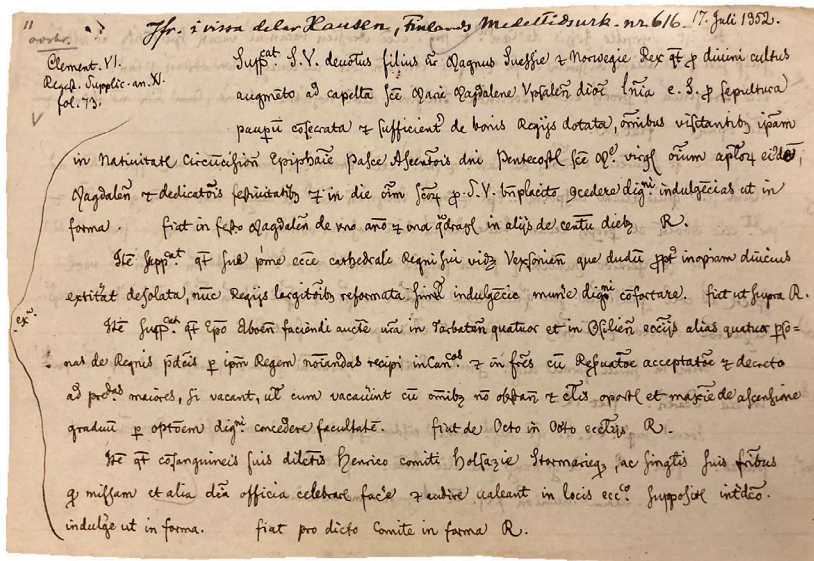 11
Jfr. i vissa delar Hausen, Finlands Medeltidsurk. nr. 616. 17. Juli 1352.
Clement. VI.
Regest. Supplic. an. XI.
fol. 73.
V
Suppᶜᵃᵗ S.V. deuotus filius Magnus Suessie ⁊ Norwegie Rex qt̄ ꝓ diuini cultus
augmēto ad capellā sc̄e Marie Magdalene Vpsaleñ dioc̄ e. S. ꝓ sepultura
paupeꝝ cōsecrata ⁊ sufficient̄ de bonis Regijs dotata, om̄ibus visitantibꝫ ipam
in Natiuitat̄ Circūcision̄ Epiphaīe Pasce Ascentōis dnī Pentecost̄ sc̄e virḡ oīum apl̄oꝝ
Magdaleñ ⁊ dedicatōis festiuitatibꝫ ⁊ in die oīm sc̄oꝝ ꝓ S.V. bn̄placito ꝯcedere digⁿⁱ indulgēcias ut in
forma. fiat in festo Magdaleñ de vno anō ⁊ vna q̄draḡ in alijs de centū diebꝫ R.
Itē supp.ᵃᵗ qt̄ sue p̄me ecc̄e cathedrale Regni sui vidꝫ Vexsionen̄ que dudū ꝓpt̄ inopiam diucius
extitāt desolata, nūc Regijs largitōibꝫ reformata indulgēcie mun̄e digⁿⁱ cōfortare. fiat ut supra R.
Itē suppᶜᵃᵗ qt̄ Ep̄o Aboen̄ faciendi aucte v̄ra in Tarbaten̄ quatuor et in Osilien̄ ecc̄ijs alias quatuor p̄so=
nas de Regnis p̄dc̄is ꝑ ipm̄ Regem noīandas recipi in Canᶜᵒˢ ⁊ in fr̄es cū acceptatōe ⁊ decreto
ad preᵈᵃˢ maiores, si vacant, ut̄ cum vacau̅int cū om̄ibꝫ nō obstan̄ ⁊ cl̄is oport̄ et maxīe de ascensione
graduū ꝑ optōem digⁿⁱ concedere facultatē. fiat de Octo in Octo eccl̄ijs R.
Itē qt̄ cōsanguineis suis dilc̄tis Henrico comiti Holsazie Stormarieqꝫ, ac singl̄is suis fr̄ibus
q̄ missam et alia dīa officia celebrar̄ fac̄e ⁊ audire ualeant in locis eccᶜᵒ supposit̄ int̄dc̄o.
indulḡe ut in forma. fiat pro dicto Comite in forma R.